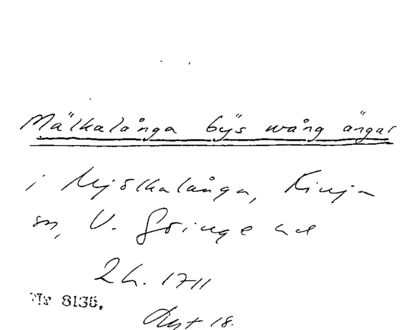 Mälkalånga bÿs wång ängar
i Mjölkalånga, Finja
sn, V. Göinge hd
Lh. 1711
Nr 8136.
Akt 18.